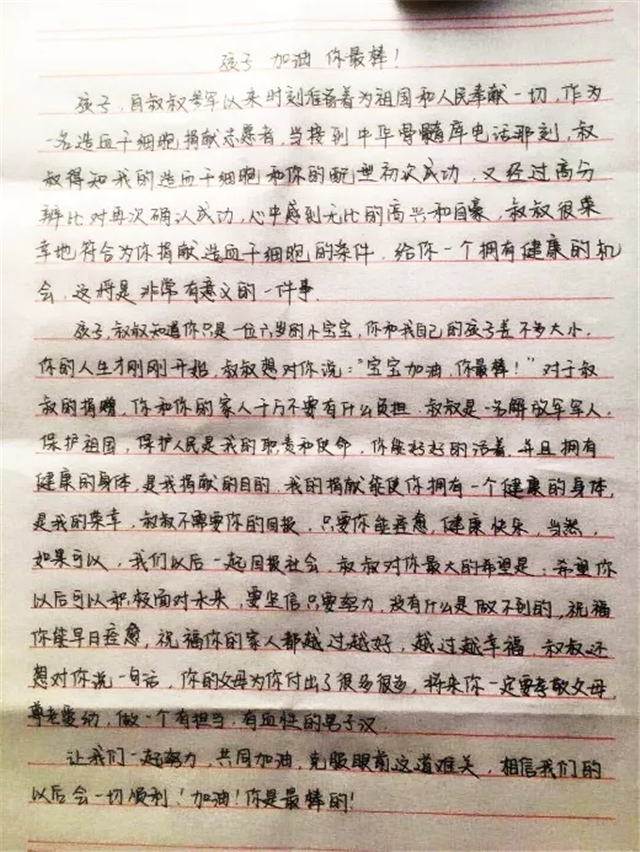 孩子 加油 你最棒！
孩子，自叔叔参军以来时刻准备着为祖国和人民奉献一切，作为
一名造血干细胞捐献志愿者，当接到中华骨髓库电话那刻，叔
叔得知我的造血干细胞和你的配型初次成功，又经过高分
辨比对再次确认成功，心中感到无比的高兴和自豪，叔叔很荣
幸地符合为你捐献造血干细胞的条件，给你一个拥有健康的机
会，这将是非常有意义的一件事.
孩子，叔叔知道你只是一位六岁的小宝宝，你和我自己的孩子差不多大小，
你的人生才刚刚开始，叔叔想对你说："宝宝加油，你最棒！"对于叔
叔的捐赠，你和你的家人千万不要有什么负担，叔叔是一名解放军军人，
保护祖国，保护人民是我的职责和使命，你能好好的活着，并且拥有
健康的身体，是我捐献的目的，我的捐献能使你拥有一个健康的身体，
是我的荣幸，叔叔不需要你的回报，只要你能痊愈，健康快乐，当然，
如果可以，我们以后一起回报社会，叔叔对你最大的希望是：希望你
以后可以积极面对未来，要坚信只要努力，没有什么是做不到的，祝福
你能早日痊愈，祝福你的家人都越过越好，越过越幸福，叔叔还
想对你说一句话，你的父母为你付出了很多很多，将来你一定要孝敬父母，
尊老爱幼，做一个有担当，有血性的男子汉.
让我们一起努力，共同加油，克服眼前这道难关，相信我们的
以后会一切顺利！加油！你是最棒的！